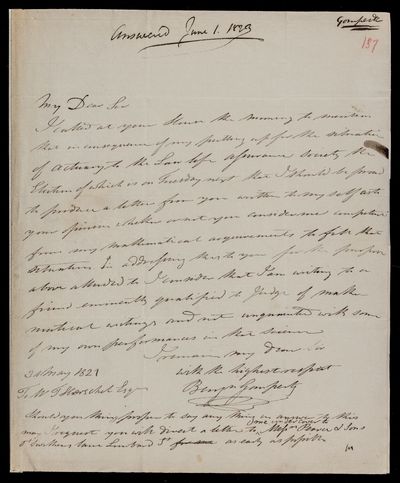 Answered June 1. 1823
Gompertz
137
My Dear Sir
I called at your House this morning to mention
that in consequence of my putting up for the situation
of Actuary to the Law life assurance society the
Election of which is on Tuesday next that I should be proud
to produce a letter from you written to my self as to
your opinion whether or not you consider me competent
from my mathematical acquirements to fill that
situation. In addressing this to you for the purpose
above alluded to I consider that I am writing to a
friend eminently qualified to judge of mathe
matical writings and not unacquainted with some
of my own performances in that science
I remain my dear Sir
with the highest respect
Benjn Gompertz
31 May 1823
To W J Herschel Esqr
Should you think proper to say any thing in answer to this
may I request you will direct a letter to me under cover to
Messrs
& Sons
Lane Lombard St as early as possible